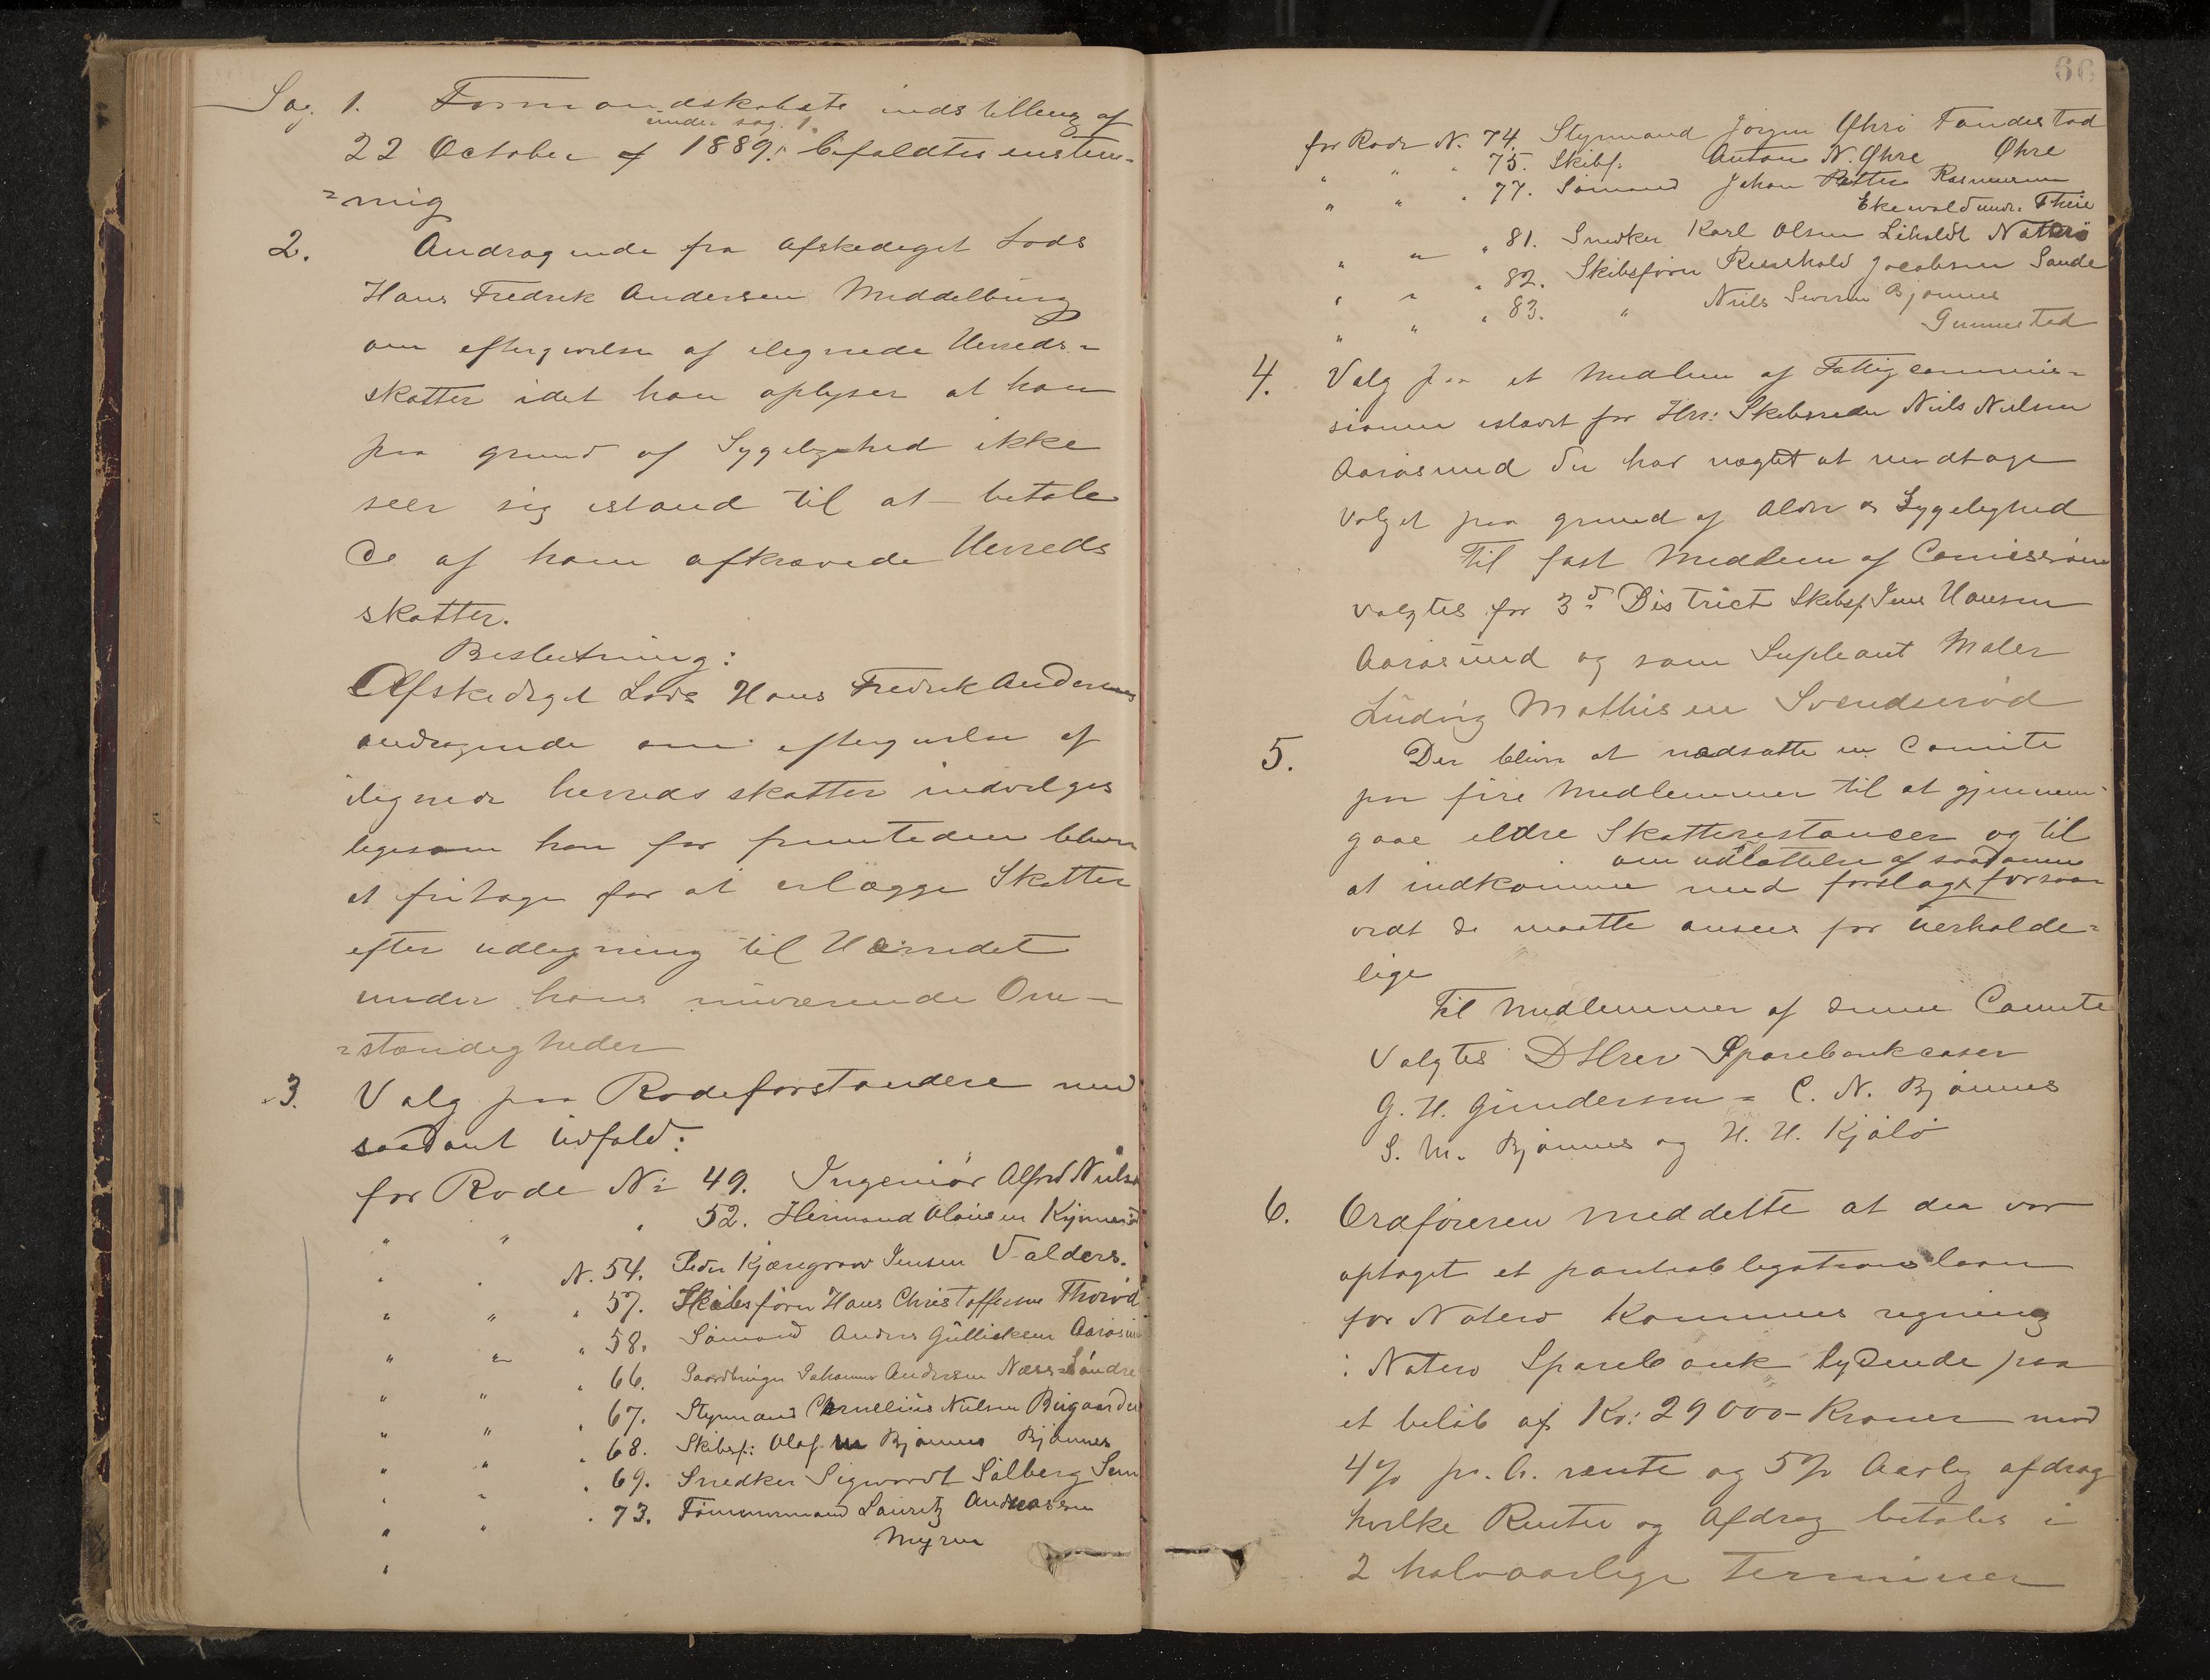 Sag. 1. Formandskabets indstilling af
under sag. 1.
22 October af 1889. bifaldtes enstem=
=mig
2. Andragende fra afskediget Lods
Hans Fredrik Andersen Middelburg
om eftergivelse af ilignede Herreds=
skatter idet han oplyser at han
paa grund af Sygelighed ikke
seer sig istand til at betale
de af ham afkrævede Herreds
skatter.
Beslutning:
Afskediget Lods Hans Fredrik Andersens
andragende om eftergivelse af
ilignede herredsskatter indvilges
ligesom han for fremtiden bliver
at fritage for at erlægge Skatter
efter udligning til Herredet
under hans nuværende Om=
=stændigheder
3. Valg paa Rodeforstandere med
saadant Udfald:
for Rode No 49. Ingeniør Alfred Nielsen
" " " 52. Hermand Olausen Kjønnerød
" " N. 54. Peder Kjæregrav Jensen Valders.
" " " 57. Skibsfører Hans Christoffersen Thorød
" " " 58. Sømand Anders Gulliksen Aarøsund
" " " 66. Gaardbruger Johannes Andersen Næss=Søndre
" " " 67. Styrmand Cornelius Nielsen Buegaarden
" " " 68. Skibsf: Olaf M Bjønnes Bjønnes
" " " 69. Snedker Sigwardt Solberg Sem
" " " 73. Tømmermand Lauritz Andreassen
" Myren
66
for Rode N. 74. Styrmand Jørgen Øhre Fandestad
" " " 75. Skibsf: Anton N. Øhre Øhre
" " " 77. Sømand Johan Petter Rasmussen
Ekewold undr. Theie
" " " 81. Snedker Karl Olsen Liholdt Nøtterø
" " " 82. Skibsfører Reinhold Jacobsen Sande
" " " 83. " Niels Severin Bjønnes
Gunnestad
4. Valg paa et Medlem af Fattigcommis=
sionen istedet for Hrr: Skibsreder Niels Nielsen
Aarøsund der har nægtet at modtage
valget paa grund af Alder og Sygelighed
Til fast Medlem af Comissionen
valgtes for 3d District Skibsf. Jens Hansen
Aarøsund og som Supleant Maler
Ludvig Mathisen Svendserød
5. Der bliver at nedsætte en Comite
paa fire Medlemmer til at gjennem=
gaae eldre Skatterestancer og til
om udslettelse af saadanne
at indkomme med forslag forsaa=
vidt de maatte ansees for uerholde=
lige
Til Medlemmer af denne Comite
Valgtes DHrer Sparebankcaser
G. H. Gundersen = C. N. Bjønnes
S. M. Bjønnes og H. H. Kjølø
6. Ordføreren meddelte at der var
optaget et pantobligationslaan
for Nøterø Kommunes regning
i Nøterø Sparebank lydende paa
et beløb af Kr: 29000 – Kroner mod
4% pr. A. rente og 5% Aarlig afdrag
hvilke Renter og Afdrag betales i
2 halvaarlige Terminer